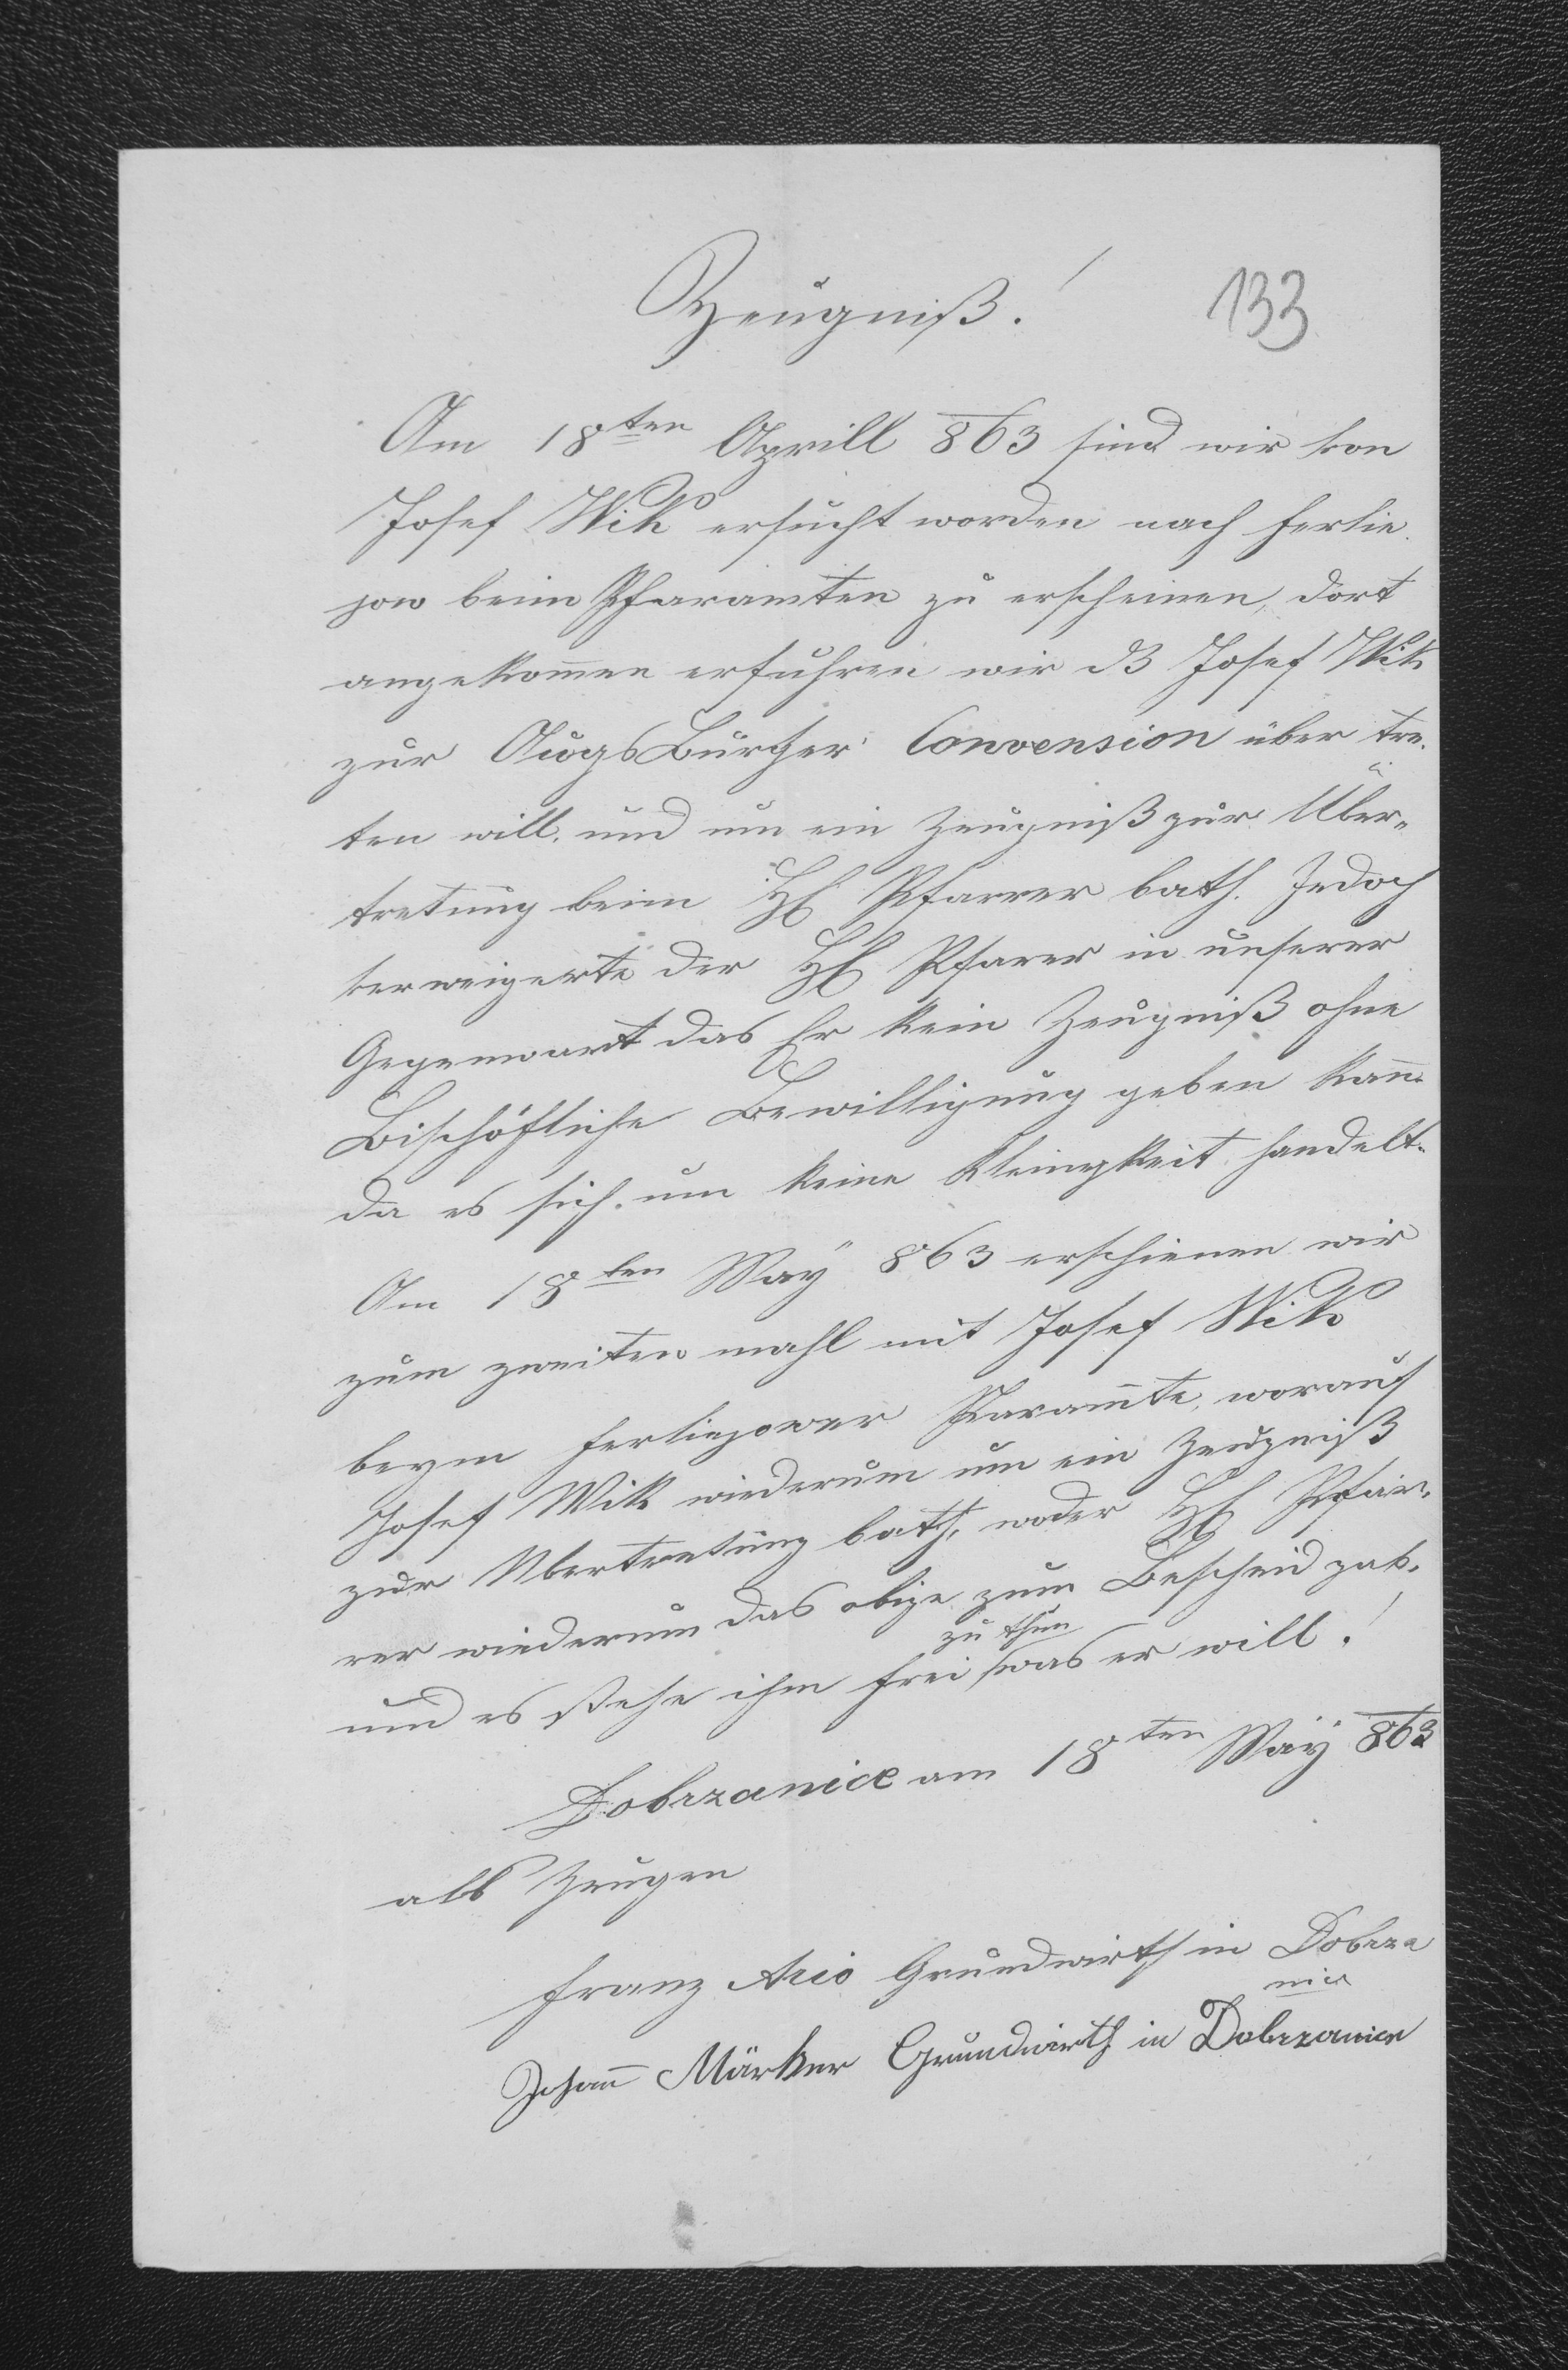 Zeugniß!
133
Am 18ten Aprill 863 sind wir von
Josef Wik ersucht worden nach Ferlie¬
jow beim Pfaramten zu erscheinen, dort
angekom̅en erfuhren wir dß Josef Wik
zur AugsBurger Convension über tre¬
ten will, und um ein Zeugniß zur Über¬
tretung beim H Pfarrer bath. Jedoch
verweigerte der H Pfarer in unserer
Gegenwart das Er kein Zeugniß ohne
Bischöfliche Bewilligung geben kan̅
da es sich um keine Kleinigkeit handelt.
Am 18ten May 863 erschienen wir
zum zweiten mahl mit Josef Wik
beym Ferliejower Pfaram̅te, worauf
Josef Wik wiederum um ein Zeugniß
zur Übertretung bath, woder H Pfar¬
rer wiederum das obige zum Bescheid gab,
und es stehe ihm frei zu thun was er will!
Dobrzanice am 18ten May 863
als Zeugen
Franz Grundwirth in Dobrza
nice
Johan̅ Märker Grundwirth in Dobrzanice